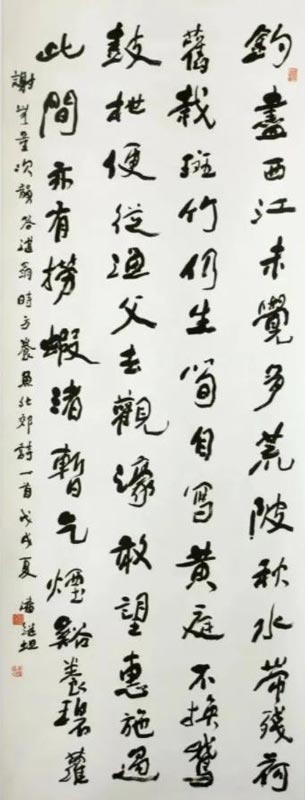 釣盡西江未覺多荒陂秋水帶殘荷
舊栽斑竹仍生筍自寫黃庭不換鵝
鼓枻便從漁父去觀濠敢望惠施過
此間亦有撈蝦渚暫乞煙谿養碧蘿
謝无量次韻答湛翁時方養魚北郊詩一首戊戌夏